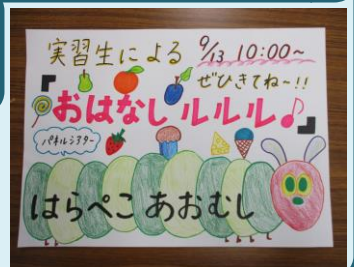 実習生による 9/13 10:00~
ぜひきてね~!!
『おはなしルルル♪』
パネルシアター
はらぺこあおむし